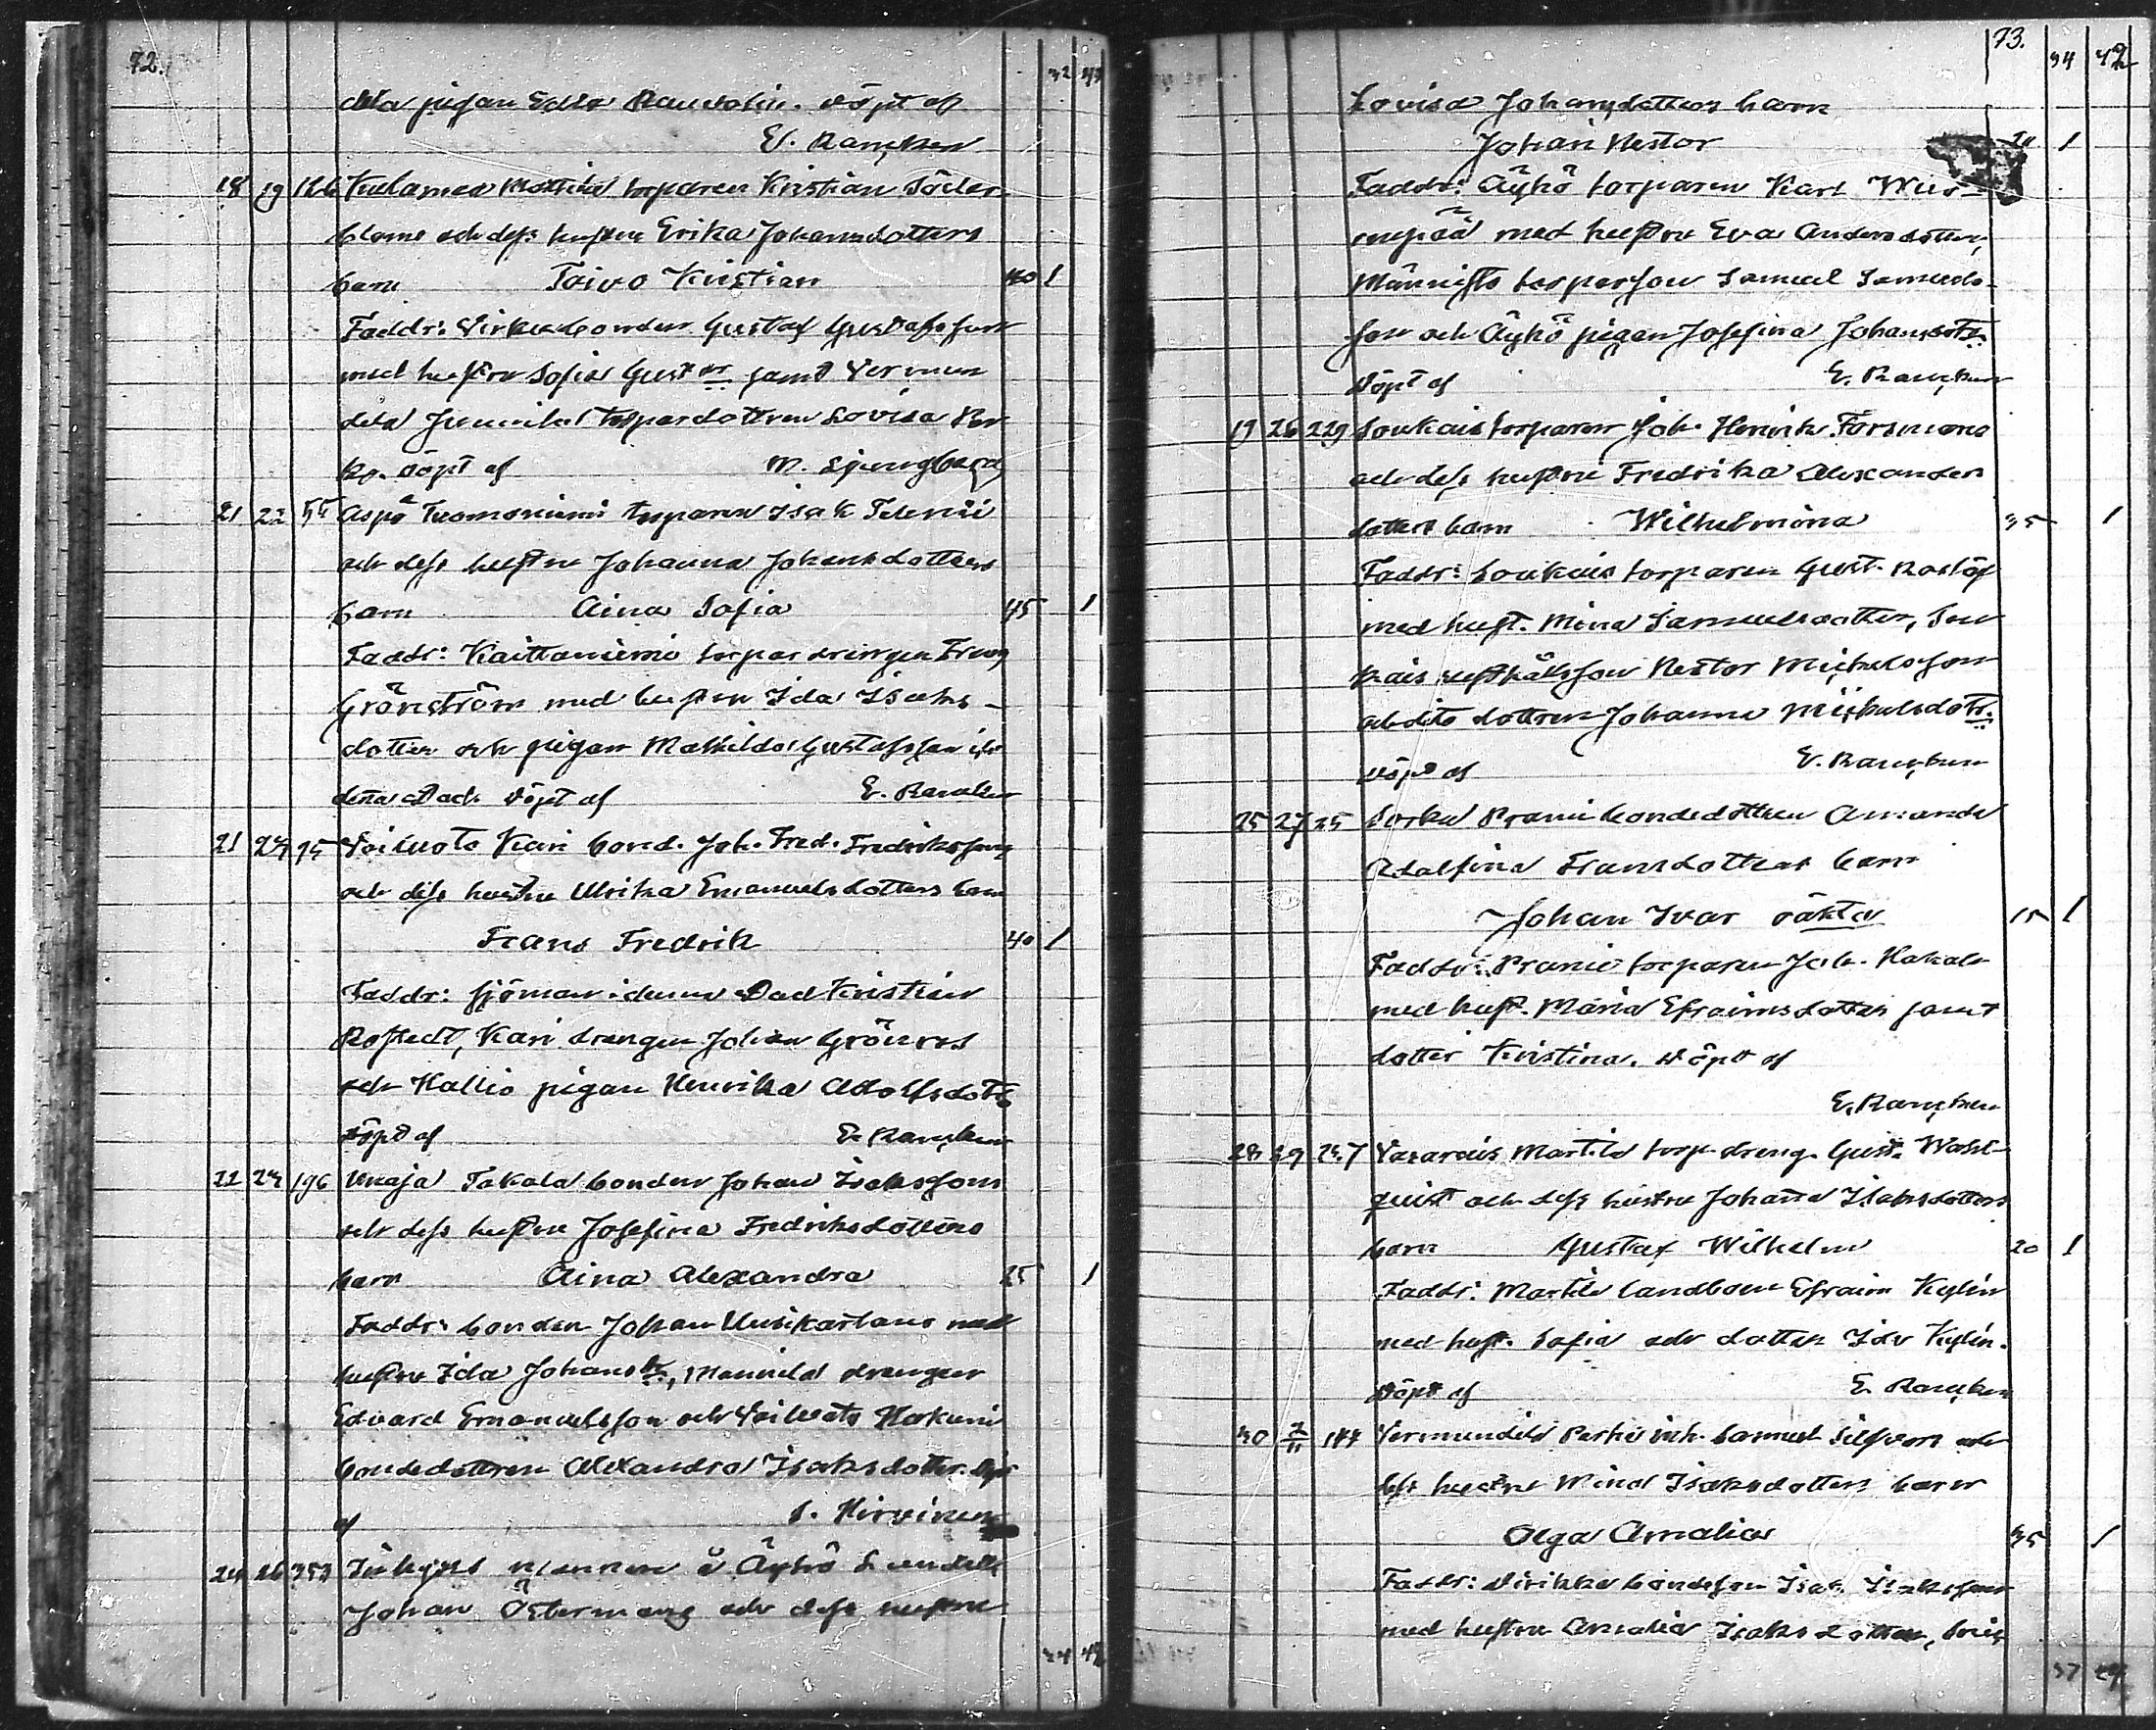 72.
32 47
dela pigan Edla Randelin. döpt af
E. Rancken
18 19 126 Kulamaa Mattila torparen Kristian Söder-
bloms och dess hustru Erika Johansdotters
barn Toivo Kristian 40 1
Faddr: bonden Gustaf Gustafsson
med hustru Sofia Gust dr samt Vermun
dela Junnila torpardottren Lovisa
döpt af M. Ljungberg
21 22 55 Aspö Tuomoniemi torparen Isak
och dess hustru Johanna Johansdotters
barn Aina Sofia 45 1
Faddr: Kaittaniemi torpar drengen Frans
Grönström med hustru Ida Isaks-
dotter och pigan Mathilda Gustafsson i
denna stad döpt af E. Rancken
21 24 95 Voiluoto Kari bond. Joh. Fred. Fredrikssons
och dess hustru Ulrika Emanuelsdotters barn
Frans Fredrik 40 1
Faddr: sjöman i denna stad Kristian
Rostedt, Kari drengen Johan Grönros
och Kallio pigan Henrika Adolfsdottr.
döpt af E. Rancken
22 24 196 Unaja Takala bonden Johan Isakssons
och dess hustru Josefina Fredriksdotters
barn Aina Alexandra 25 1
Faddr: bonden Johan Uusikartano med
hustru Ida Johans dr, Mannila drengen
Edvard Emanuelsson och Voiluoto Hakuni
bondedottren Alexandra Isaksdotter. Döpt
af S. Hirvinen
24 26 353 Inhyses mannen å Äyhö
Johan Östermans och dess hustru
34 48
73.
34 48
Lovisa Johansdotters barn
Johan Nestor 20 1
Faddr: Äyhö torparen Karl
med hustru Eva Andersdotter,
Männistö torparson Samuel Samuels-
son och Äyhö pigan Josefina Johansdottr.
döpt af E. Rancken
19 26 229 Soukais torparen Joh. Henrik Forsmans
och dess hustru Fredrika Alexanders
dotters barn Wilhelmina 35 1
Faddr: Soukais torparen Gust. Roslöf
med hust. Mina Samuelsdotter, Sou
kais rusthålsson Nestor Mickelsson
och dito dottren Johanna Mickelsdotr.
döpt af E. Rancken
25 27 25 Sorka Prami bondedottren Amanda
Adolfina Fransdotters barn
Johan Ivar oäkta 15 1
Faddr: Pranie torparen Joh. Hakala
med hust. Maria Efraimsdotter samt
dotter Kristina. döpt af
E. Rancken
28 29 247 Vasarais Martila torp. dreng. Gust. Wahl-
quist och dess hustru Johanna Isaksdotters
barn Gustaf Wilhelm 20 1
Faddr: Martila landbon Efraim Kylén
med hust. Sofia och dotter Ida Kylén.
döpt af E. Rancken
30 2/11 144 Vermundila Perho inh. Samuel Silfvers och
dess hustru Mina Isaksdotters barn
Olga Amalia 35 1
Faddr: bondeson Isak Isaksson
med hustru Amalia Isaksdotter,
37 49